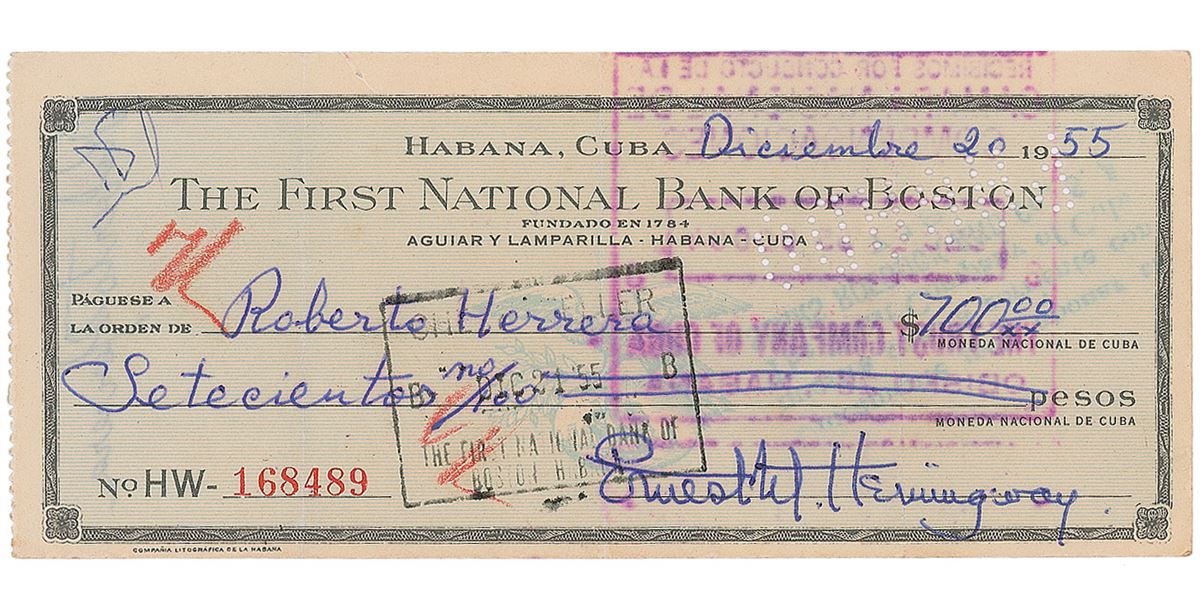 HABANA, CUBA Diciembre 20 1955
THE FIRST NATIONAL BANK OF BOSTON
FUNDADO EN 1784
AGUIAR Y LAMPARILLA - HABANA - CUBA
PÁGUESE A
LA ORDEN DE Roberto Herrera $700 00/xx
MONEDA NACIONAL DE CUBA
Setecientos no/xx pesos
MONEDA NACIONAL DE CUBA
TELLER
B DIC 21 '55 B
THE FIRST NATIONAL BANK OF
BOSTON HABANA
No HW- 168489
Ernest M. Hemingway
COMPAÑIA LITOGRÁFICA DE LA HABANA